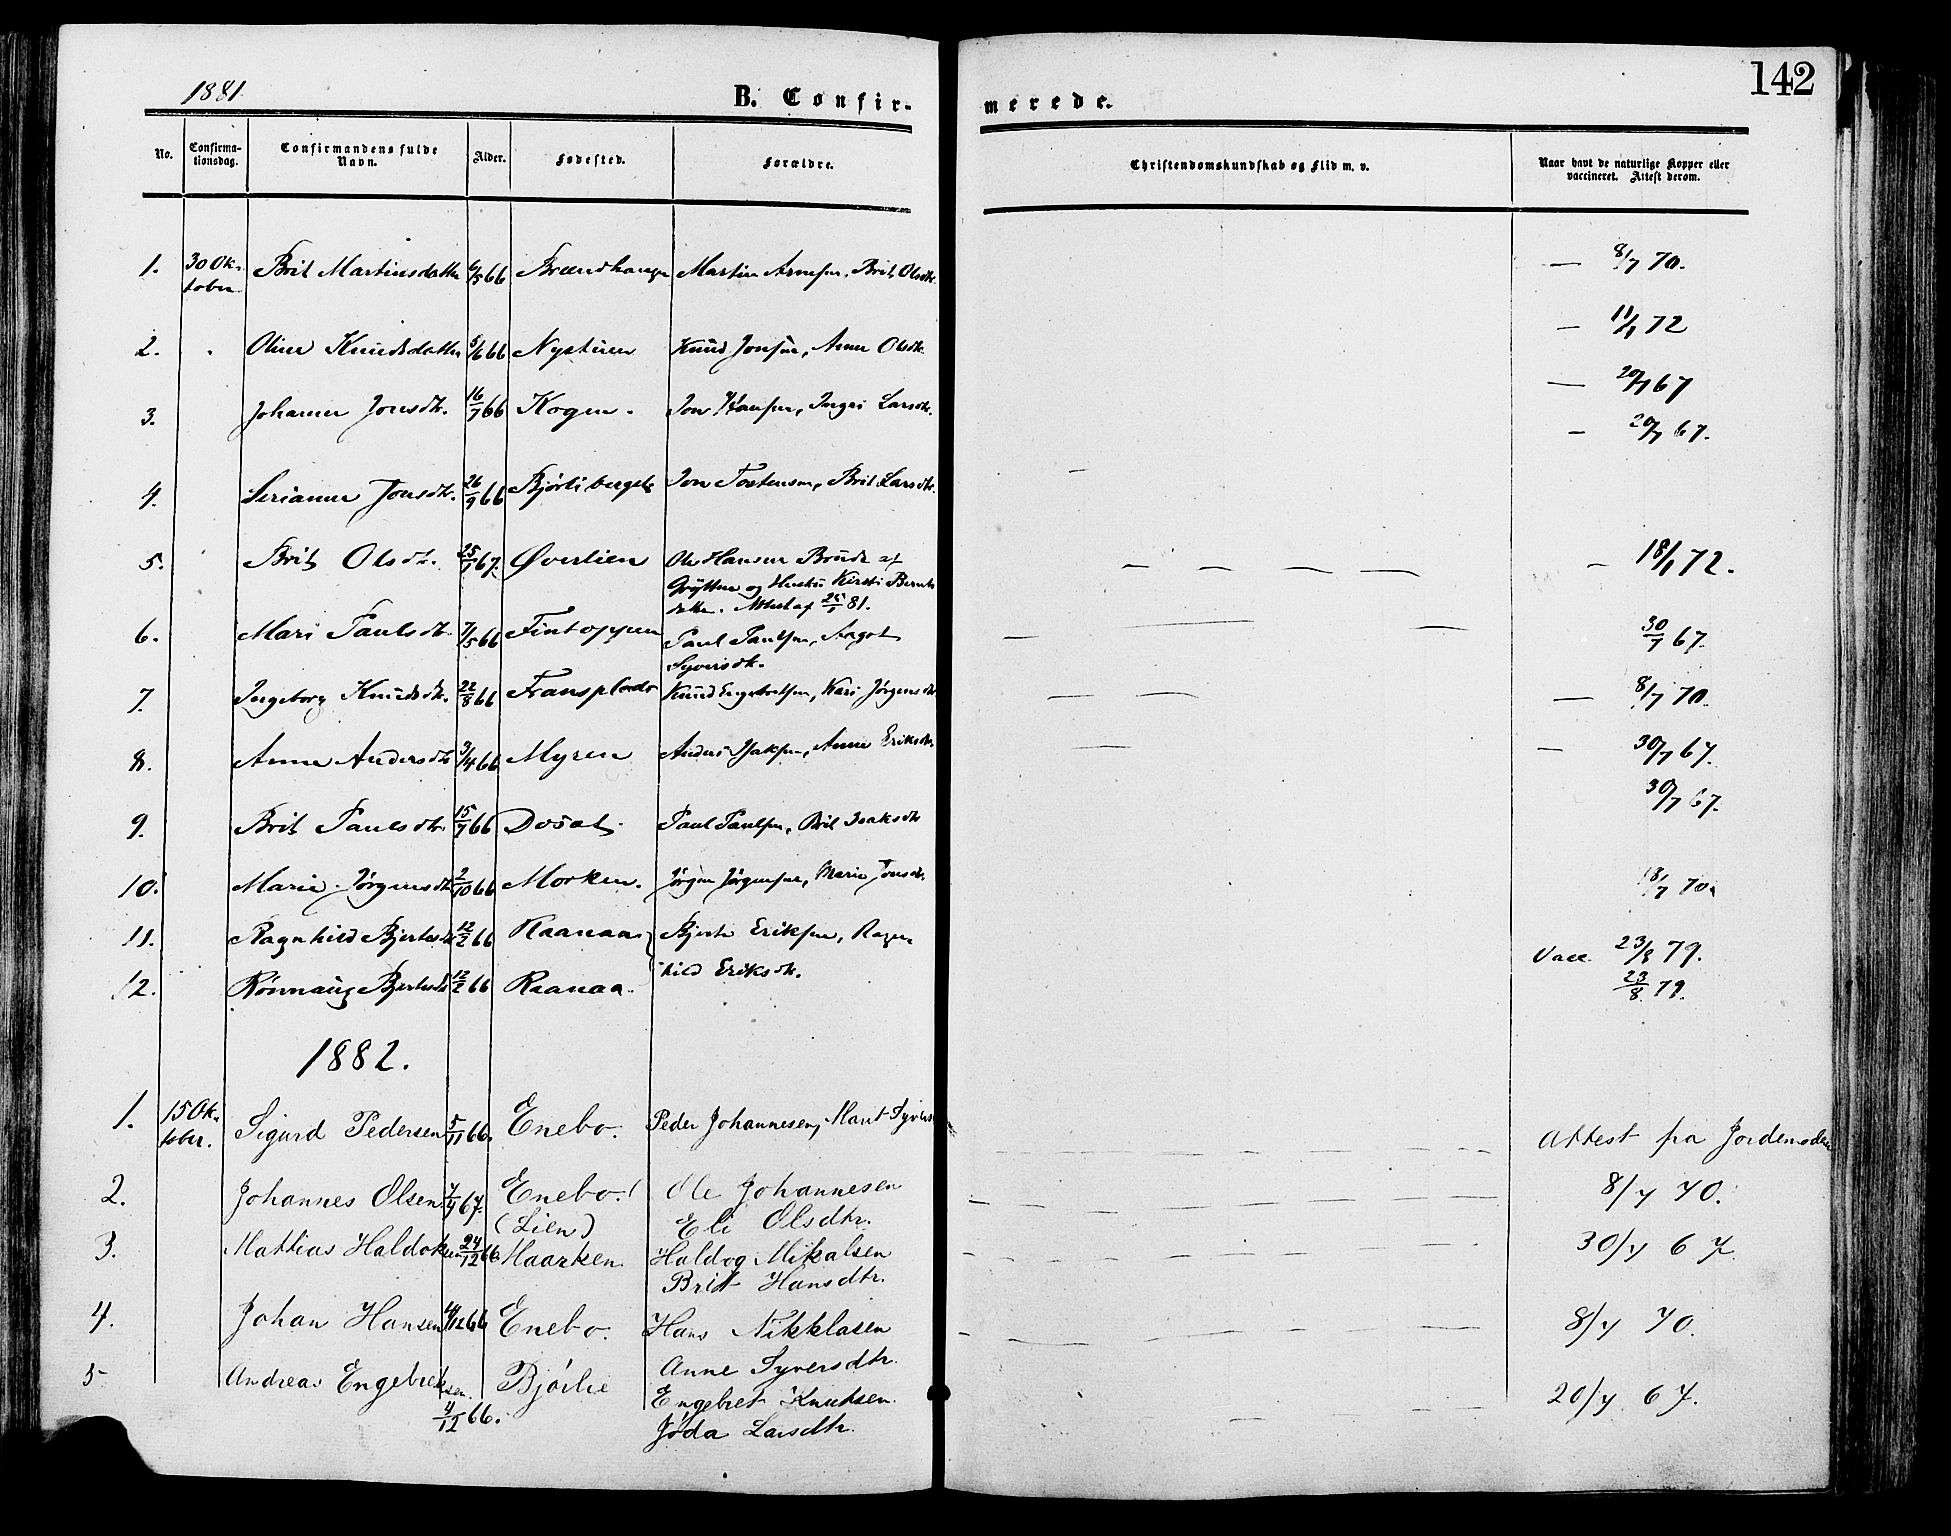 1881.
B. Confir-
merede.
142
No. Confirma-tionsdag. Confirmandens fulde Navn. Alder. Fødested. Forældre. Christendomskundskab og Flid m. v. Naar havt de naturlige Kopper eller vaccineret. Attest derom.
1. 30 Ok-tober. Brit Martinsdatter 6/5 66 Brændhaugen Martin Arnesen, Brit Olsdtr. — 8/7 70.
2. Oline Knudsdatter 5/6 66 Nystuen Knud Jonsen, Anne Olsdtr. — 11/1 72
3. Johanne Jonsdtr. 16/7 66 Kogen. Jon Hansen, Ingri Larsdtr. — 20/7 67
4. Serianne Jonsdtr. 26/9 66 Bjørlibergets Jon Tostensen, Brit Larsdtr. — 20/7 67.
5. Brit Olsdtr. 25/1 67. Øverlien Ole Hansen Brude af
Grytten og Hustru Kirsti Bernts
datter. Attest af 25/1 81. — 18/1 72.
6. Mari Paulsdtr. 7/5 66 Tintoppen Paul Paulsen, Aagot
Syversdtr. 30/7 67.
7. Ingeborg Knudsdtr. 22/8 66 Knud Engebretsen, Kari Jørgensdtr — 8/7 70.
8. Anne Andersdtr 3/4 66 Myren Anders Isaksen, Anne Eriksdtr. — 30/7 67.
9. Brit Paulsdtr. 15/7 66 Paul Paulsen, Brit Isaksdtr 30/7 67.
10. Marie Jørgensdtr 2/10 66 Morken. Jørgen Jørgensen, Marie Jonsdtr. 18/7 70.
11. Ragnhild Bjertesdtr 12/2 66 Raanaa Bjerte Eriksen, Ragn- Vacc. 23/8 79.
12. Rønnaug Bjertesdtr 12/2 66 Raanaa. hild Eriksdtr. 23/8 79.
1882.
1. 15 Ok-tober. Sigurd Pedersen 5/11 66. Enebo. Peder Johannesen, Marit Syvers Attest fra Jordemoder
2. Johannes Olsen 7/4 67. Enebo. Ole Johannesen 8/7 70.
(Lien) Eli Olsdtr.
3. Mattias Haldoksen 24/12 66 Maarken. Haldog Mikalsen 30/7 67.
Brit Hansdtr.
4. Johan Hansen 4/12 66 Enebo. Hans Nikklasen 8/7 70.
Anne Syversdtr.
5 Andreas Engebretsen. 4/12 66. Bjørlie Engebret Knutsen. 20/7 67.
Jøda Larsdtr.